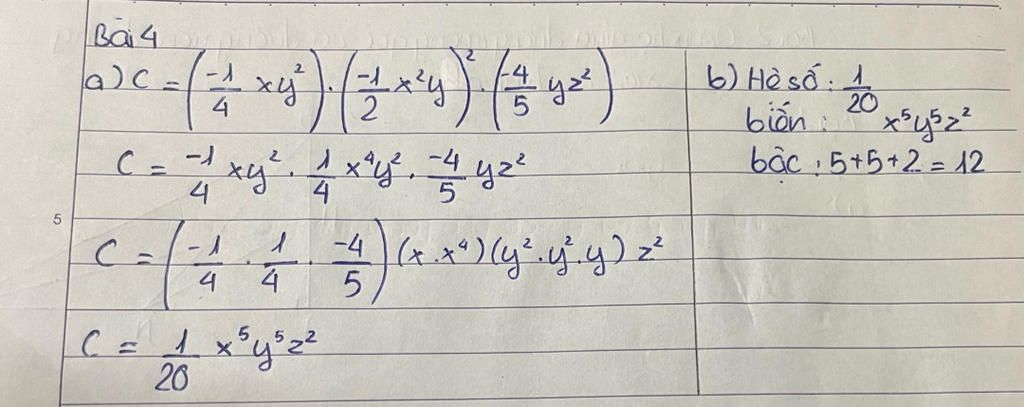 Bài 4
a) C = (-1/4 xy²) · (-1/2 x²y)² · (-4/5 yz²)
C = -1/4 xy² · 1/4 x⁴y² · -4/5 yz²
5
C = (-1/4 · 1/4 · -4/5) (x . x⁴) (y² . y² . y) z²
C = 1/20 x⁵y⁵z²
b) Hệ số : 1/20
biến : x⁵y⁵z²
bậc : 5+5+2 = 12